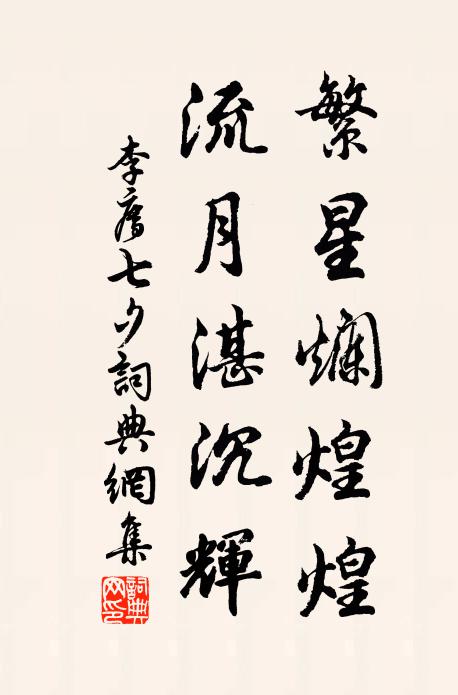 繁星爛煌煌
流月湛沉輝
李廌七夕詞典網集
詞典網印